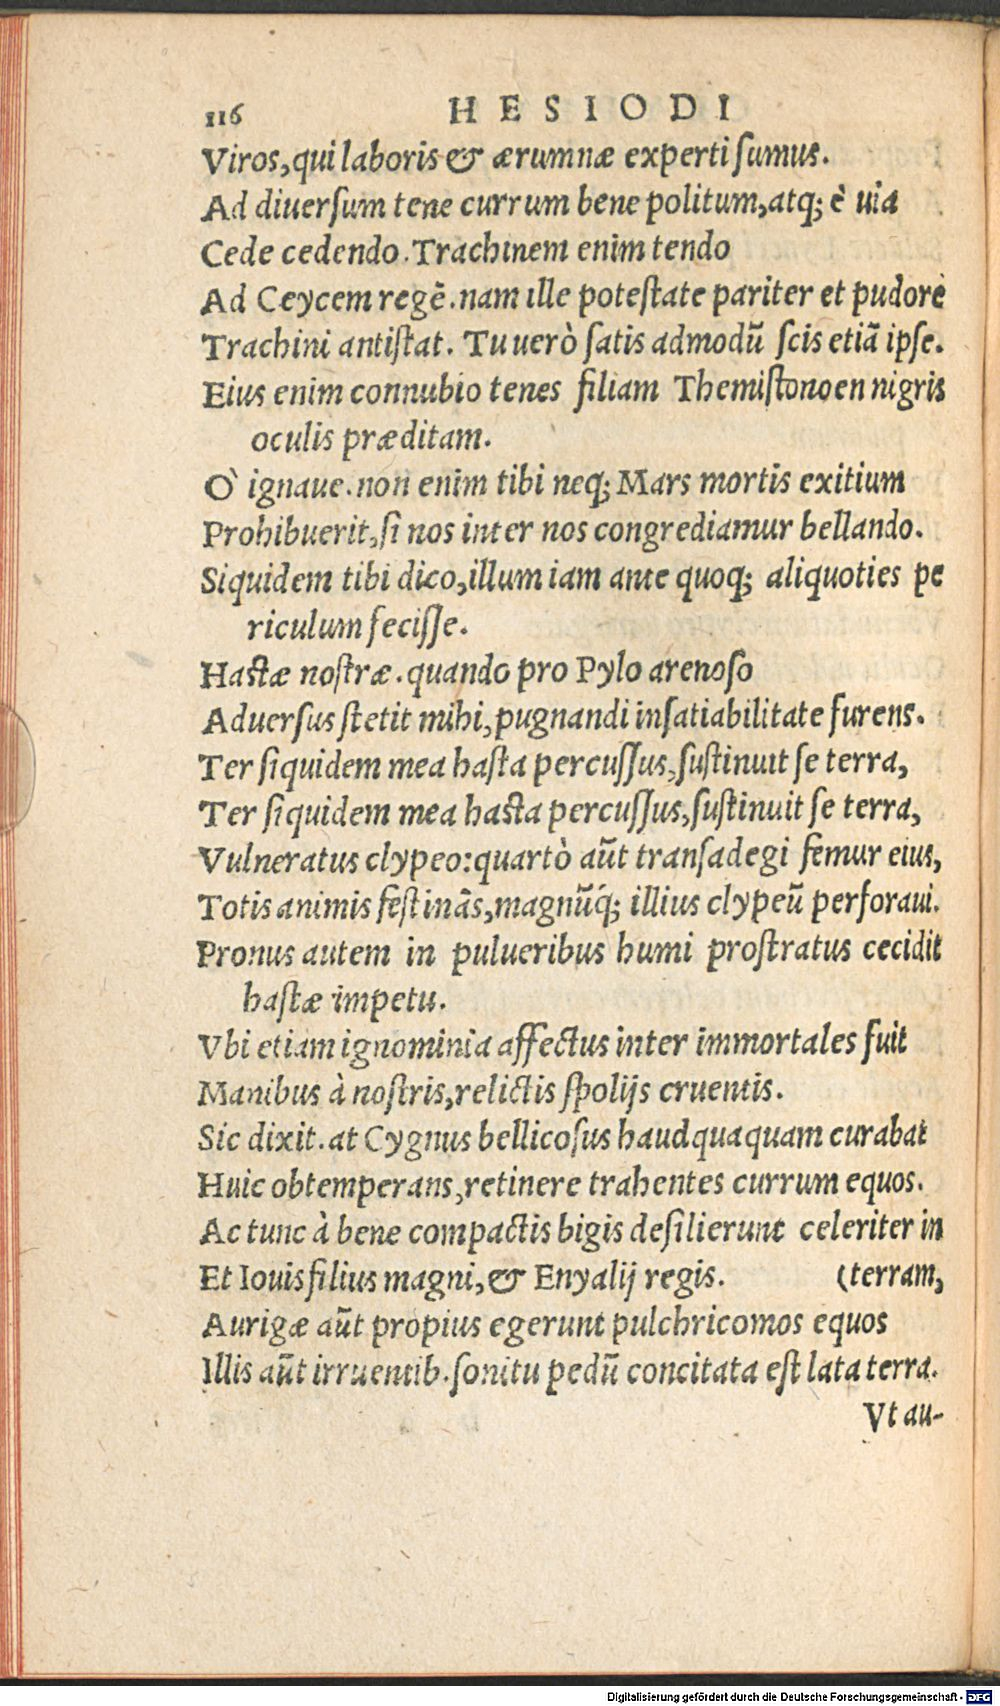 116 HESIODI
Viros, qui laboris & ærumnæ experti sumus.
Ad diuersum tene currum bene politum, atq; è uia
Cede cedendo. Trachinem enim tendo
Ad Ceycem regē. nam ille potestate pariter et pudore
Trachini antistat. Tu uerò satis admodū scis etiā ipse.
Eius enim connubio tenes filiam Themistonoen nigris
oculis præditam.
O` ignaue. non enim tibi neq; Mars mortis exitium
Prohibuerit, si nos inter nos congrediamur bellando.
Siquidem tibi dico, illum iam ante quoq; aliquoties pe
riculum fecisse.
Hastæ nostræ. quando pro Pylo arenoso
Aduersus stetit mihi, pugnandi insatiabilitate furens.
Ter siquidem mea hasta percussus, sustinuit se terra,
Ter siquidem mea hasta percussus, sustinuit se terra,
Vulneratus clypeo: quartò aūt transadegi femur eius,
Totis animis festinās, magnūq́; illius clypeū perforaui.
Pronus autem in pulueribus humi prostratus cecidit
hastæ impetu.
Vbi etiam ignominia affectus inter immortales fuit
Manibus à nostris, relictis spolijs cruentis.
Sic dixit. at Cygnus bellicosus haudquaquam curabat
Huic obtemperans, retinere trahentes currum equos.
Ac tunc à bene compactis bigis desilierunt celeriter in
Et Iouis filius magni, & Enyalij regis. (terram,
Aurigæ aūt propius egerunt pulchricomos equos
Illis aūt irruentib. sonitu pedū concitata est lata terra.
Vt au-
Digitalisierung gefördert durch die Deutsche Forschungsgemeinschaft - DFG